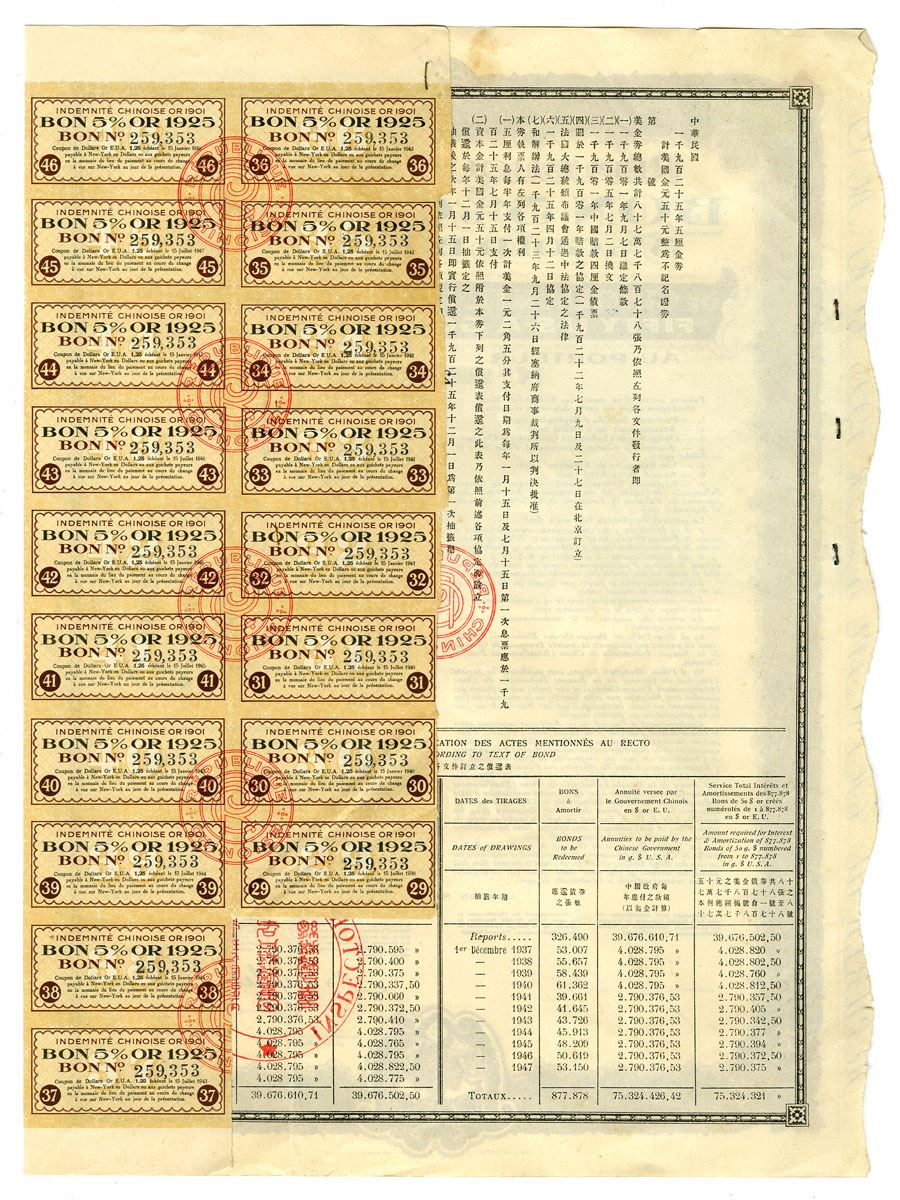 INDEMNITÉ CHINOISE OR 1901
BON 5% OR 1925
BON Nº 259,353
Coupon de Dollars Or E.U.A. 1,25 échéant le 15 Janvier 1948
payable à New-York en Dollars ou aux guichets payeurs
en la monnaie du lieu du paiement au cours du change
à vue sur New-York au jour de la présentation.
46 46
INDEMNITÉ CHINOISE OR 1901
BON 5% OR 1925
BON Nº 259,353
Coupon de Dollars Or E.U.A. 1,25 échéant le 15 Janvier 1943
payable à New-York en Dollars ou aux guichets payeurs
en la monnaie du lieu du paiement au cours du change
à vue sur New-York au jour de la présentation.
36 36
INDEMNITÉ CHINOISE OR 1901
BON 5% OR 1925
BON Nº 259,353
Coupon de Dollars Or E.U.A. 1,25 échéant le 15 Juillet 1947
payable à New-York en Dollars ou aux guichets payeurs
en la monnaie du lieu du paiement au cours du change
à vue sur New-York au jour de la présentation.
45 45
INDEMNITÉ CHINOISE OR 1901
BON 5% OR 1925
BON Nº 259,353
Coupon de Dollars Or E.U.A. 1,25 échéant le 15 Juillet 1942
payable à New-York en Dollars ou aux guichets payeurs
en la monnaie du lieu du paiement au cours du change
à vue sur New-York au jour de la présentation.
35 35
INDEMNITÉ CHINOISE OR 1901
BON 5% OR 1925
BON Nº 259,353
Coupon de Dollars Or E.U.A. 1,25 échéant le 15 Janvier 1947
payable à New-York en Dollars ou aux guichets payeurs
en la monnaie du lieu du paiement au cours du change
à vue sur New-York au jour de la présentation.
44 44
INDEMNITÉ CHINOISE OR 1901
BON 5% OR 1925
BON Nº 259,353
Coupon de Dollars Or E.U.A. 1,25 échéant le 15 Janvier 1942
payable à New-York en Dollars ou aux guichets payeurs
en la monnaie du lieu du paiement au cours du change
à vue sur New-York au jour de la présentation.
34 34
INDEMNITÉ CHINOISE OR 1901
BON 5% OR 1925
BON Nº 259,353
Coupon de Dollars Or E.U.A. 1,25 échéant le 15 Juillet 1946
payable à New-York en Dollars ou aux guichets payeurs
en la monnaie du lieu du paiement au cours du change
à vue sur New-York au jour de la présentation.
43 43
INDEMNITÉ CHINOISE OR 1901
BON 5% OR 1925
BON Nº 259,353
Coupon de Dollars Or E.U.A. 1,25 échéant le 15 Juillet 1941
payable à New-York en Dollars ou aux guichets payeurs
en la monnaie du lieu du paiement au cours du change
à vue sur New-York au jour de la présentation.
33 33
INDEMNITÉ CHINOISE OR 1901
BON 5% OR 1925
BON Nº 259,353
Coupon de Dollars Or E.U.A. 1,25 échéant le 15 Janvier 1946
payable à New-York en Dollars ou aux guichets payeurs
en la monnaie du lieu du paiement au cours du change
à vue sur New-York au jour de la présentation.
42 42
INDEMNITÉ CHINOISE OR 1901
BON 5% OR 1925
BON Nº 259,353
Coupon de Dollars Or E.U.A. 1,25 échéant le 15 Janvier 1941
payable à New-York en Dollars ou aux guichets payeurs
en la monnaie du lieu du paiement au cours du change
à vue sur New-York au jour de la présentation.
32 32
INDEMNITÉ CHINOISE OR 1901
BON 5% OR 1925
BON Nº 259,353
Coupon de Dollars Or E.U.A. 1,25 échéant le 15 Juillet 1945
payable à New-York en Dollars ou aux guichets payeurs
en la monnaie du lieu du paiement au cours du change
à vue sur New-York au jour de la présentation.
41 41
INDEMNITÉ CHINOISE OR 1901
BON 5% OR 1925
BON Nº 259,353
Coupon de Dollars Or E.U.A. 1,25 échéant le 15 Juillet 1940
payable à New-York en Dollars ou aux guichets payeurs
en la monnaie du lieu du paiement au cours du change
à vue sur New-York au jour de la présentation.
31 31
INDEMNITÉ CHINOISE OR 1901
BON 5% OR 1925
BON Nº 259,353
Coupon de Dollars Or E.U.A. 1,25 échéant le 15 Janvier 1945
payable à New-York en Dollars ou aux guichets payeurs
en la monnaie du lieu du paiement au cours du change
à vue sur New-York au jour de la présentation.
40 40
INDEMNITÉ CHINOISE OR 1901
BON 5% OR 1925
BON Nº 259,353
Coupon de Dollars Or E.U.A. 1,25 échéant le 15 Janvier 1940
payable à New-York en Dollars ou aux guichets payeurs
en la monnaie du lieu du paiement au cours du change
à vue sur New-York au jour de la présentation.
30 30
INDEMNITÉ CHINOISE OR 1901
BON 5% OR 1925
BON Nº 259,353
Coupon de Dollars Or E.U.A. 1,25 échéant le 15 Juillet 1944
payable à New-York en Dollars ou aux guichets payeurs
en la monnaie du lieu du paiement au cours du change
à vue sur New-York au jour de la présentation.
39 39
INDEMNITÉ CHINOISE OR 1901
BON 5% OR 1925
BON Nº 259,353
Coupon de Dollars Or E.U.A. 1,25 échéant le 15 Juillet 1939
payable à New-York en Dollars ou aux guichets payeurs
en la monnaie du lieu du paiement au cours du change
à vue sur New-York au jour de la présentation.
29 29
INDEMNITÉ CHINOISE OR 1901
BON 5% OR 1925
BON Nº 259,353
Coupon de Dollars Or E.U.A. 1,25 échéant le 15 Janvier 1944
payable à New-York en Dollars ou aux guichets payeurs
en la monnaie du lieu du paiement au cours du change
à vue sur New-York au jour de la présentation.
38 38
INDEMNITÉ CHINOISE OR 1901
BON 5% OR 1925
BON Nº 259,353
Coupon de Dollars Or E.U.A. 1,25 échéant le 15 Juillet 1943
payable à New-York en Dollars ou aux guichets payeurs
en la monnaie du lieu du paiement au cours du change
à vue sur New-York au jour de la présentation.
37 37
RÉPUBLIQUE CHINOISE
中華民國
一千九百二十五年五厘金券
計美國金元五十元整爲不記名證券
第 號
美金券總數共計八十七萬七千八百七十八張乃依照左列各文件發行者即
(一)一千九百零一年九月七日議定條款
(二)一千九百零五年七月二日換文
(三)一千九百零一年中國賠款四厘金債票
(四)關於一千九百零一年賠款之協定(一千九百二十二年七月九日及二十七日在北京訂立)
(五)法國大總統頒布議會通過中法協定之法律
(六)一千九百二十五年四月十二日協定
(七)和解辦法(一千九百二十三年九月二十六日經塞納府商事裁判所以判决批准)
本券執票人有左列各項權利
(一)五厘利息每半年支付一次計美金一元二角五分其支付日期爲每年一月十五日及七月十五日第一次息票應於一千九
百二十五年七月十五日支付
(二)資本金計美國金元五十元依照附於本券下列之償還表償還之此表乃依照前述各項協定而設立
償還於每年十二月一日抽籤定之
抽籤後之次年一月十五日即實行償還一千九百二十五年十二月一日爲第一次抽籤期
CATION DES ACTES MENTIONNÉS AU RECTO
ORDING TO TEXT OF BOND
各文件訂立之償還表
DATES des TIRAGES
BONS à Amortir
Annuité versée par le Gouvernement Chinois en $ or E. U.
Service Total Intérêts et Amortissements des 877.878 Bons de 50 $ or créés numérotés de 1 à 877.878 en $ or E. U.
DATES of DRAWINGS
BONDS to be Redeemed
Annuities to be paid by the Chinese Government in g. $ U. S. A.
Amount required for Interest & Amortization of 877.878 Bonds of 50 g. $ numbered from 1 to 877.878 in g. $ U. S. A.
抽籤年期
應還債券之張數
中國政府每年應付之款額(以美金計算)
五十元之美金債券共八十七萬七千八百七十八張之本利總額編號自一號至八十七萬七千八百七十八號
Reports..... 326.490 39.676.610,71 39.676.502,50
2.790.376,53 2.790.595 » 1er Décembre 1937 53.007 4.028.795 » 4.028.820 »
2.790.376,53 2.790.400 » — 1938 55.657 4.028.795 » 4.028.802,50
2.790.376,53 2.790.375 » — 1939 58.439 4.028.795 » 4.028.760 »
2.790.376,53 2.790.337,50 — 1940 61.362 4.028.795 » 4.028.812,50
2.790.376,53 2.790.060 » — 1941 39.661 2.790.376,53 2.790.357,50
2.790.376,53 2.790.372,50 — 1942 41.645 2.790.376,53 2.790.405 »
2.790.376,53 2.790.410 » — 1943 43.726 2.790.376,53 2.790.342,50
4.028.795 » 4.028.795 » — 1944 45.913 2.790.376,53 2.790.377 »
4.028.795 » 4.028.765 » — 1945 48.209 2.790.376,53 2.790.394 »
4.028.795 » 4.028.795 » — 1946 50.619 2.790.376,53 2.790.372,50
4.028.795 » 4.028.822,50 — 1947 53.150 2.790.376,53 2.790.375 »
4.028 795 » 4.028.775 »
39.676.610,71 39.676.502,50 TOTAUX..... 877.878 75.324.426,42 75.324.321 »